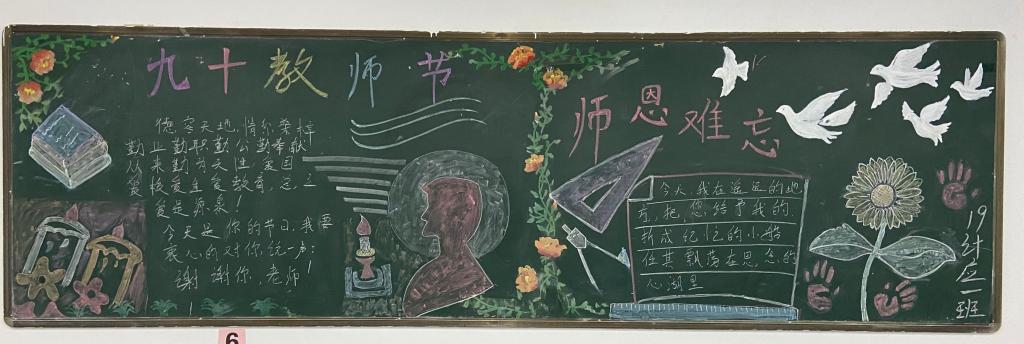 九十教师节
德容天地,情尔桑梓
勤业勤职勤公勤奉献!
从来勤为天性,爱国
爱校爱生爱教育,远
爱是源泉!
今天是你的节日,我
衷心的对你说一声:
谢谢你,老师!
师恩难忘
今天我在遥远的地
方,把您给予我的
折成记忆的小船
任其飘荡在思念的
心湖里
19计应一班
6